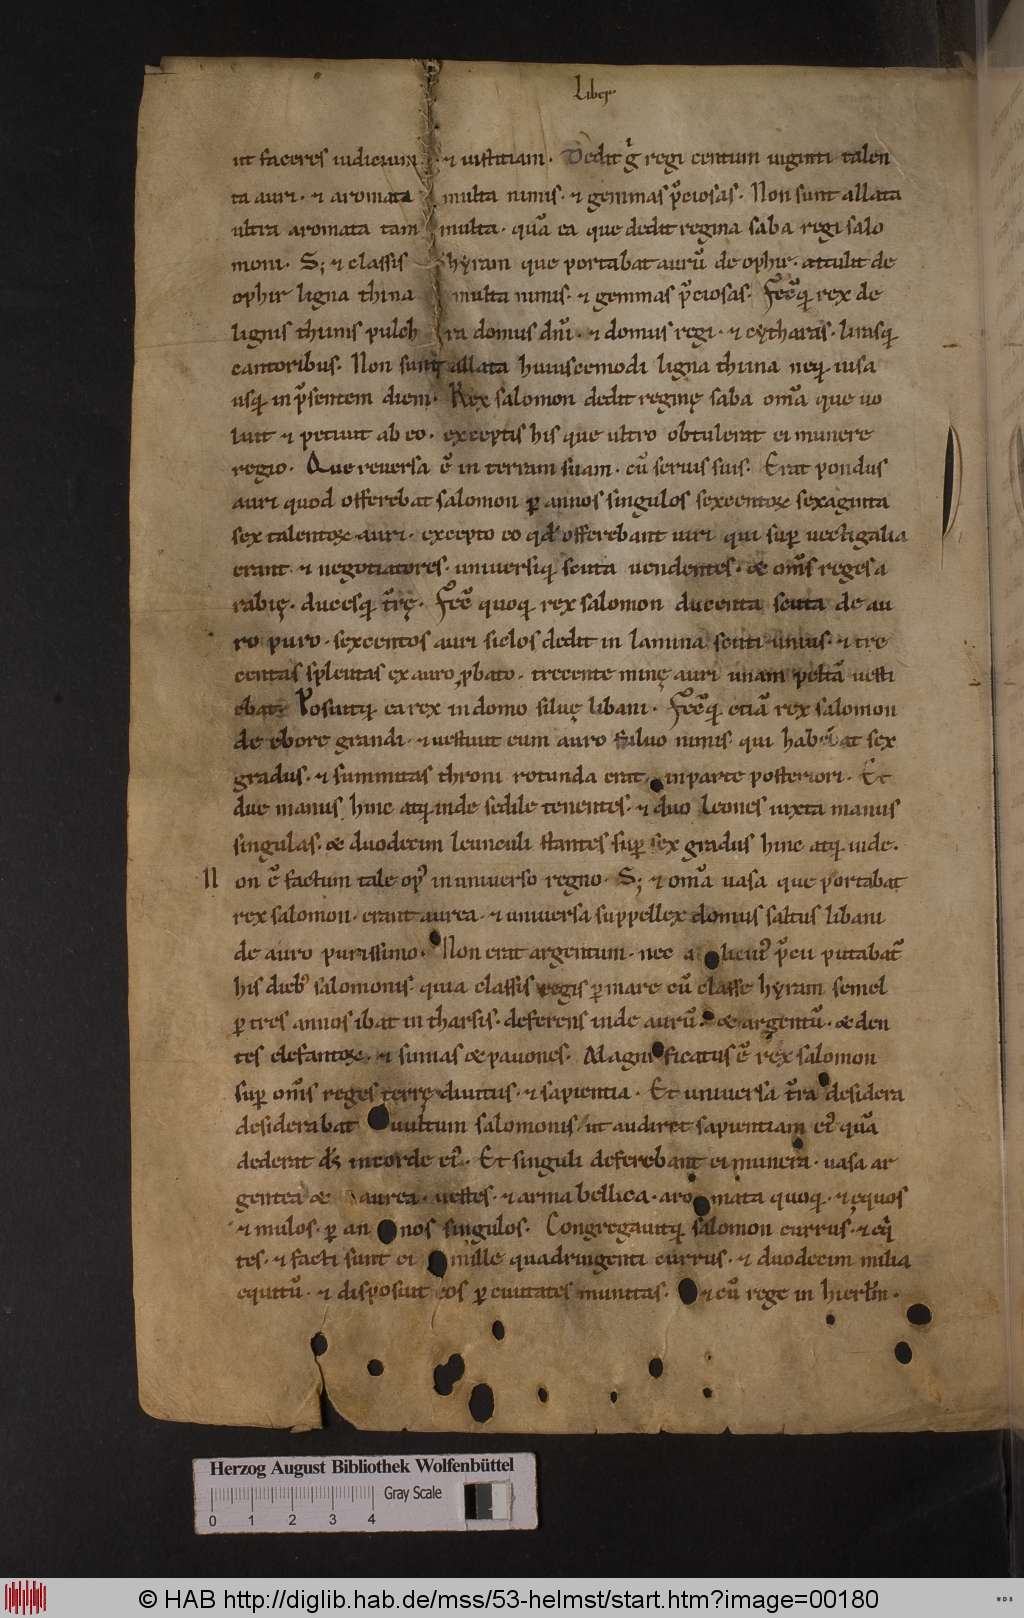 Liber
ut faceres iudicium ⁊ iustitiam. Dedit g̊ regi centum uiginti talen
ta auri. ⁊ aromata multa nimis. ⁊ gemmas p̃ciosas. Non sunt allata
ultra aromata tam multa. quã ea que dedit regina saba regi salo
moni. S; ⁊ classis hyram que portabat aurũ de ophir. attulit de
ophir ligna thina multa nimis. ⁊ gemmas p̃ciosas. Fecitq; rex de
lignis thinis pulch ra domus dñi. ⁊ domus regi. ⁊ cytharas. lirasq;
cantoribus. Non sunt allata huiuscemodi ligna thina neq; uisa
usq; in p̃sentem diem. Rex salomon dedit reginę saba om̃a que uo
luit ⁊ petiuit ab eo. exceptis his que ultro obtulerat ei munere
regio. Que reuersa ẽ in terram suam. cũ seruis suis. Erat pondus
auri quod offerebat salomon ꝑ annos singulos sexcentoꝝ sexaginta
sex talentoꝝ auri. excepto eo qd̓ offerebant uiri qui suꝑ uectigalia
erant ⁊ negotiatores. uniuersiq; scuta uendentes. & om̃s reges a
rabię. ducesq; t̃rę. Fec̃ quoq; rex salomon ducenta scuta de au
ro puro. sexcentos auri siclos dedit in lamina scuti unius. ⁊ tre
centas spleutas ex auro ꝓbato. trecente minę auri unam peltã uesti
ebat. Posuitq; ea rex in domo siluę libani. Fecitq; etiã rex salomon
de ebore grandi. ⁊ uestiuit eum auro fuluo nimis. qui habebat sex
gradus. ⁊ summitas throni rotunda erat in parte posteriori. Et
due manus hinc atq; inde sedile tenentes. ⁊ duo leones iuxta manus
singulas. & duodecim leunculi stantes suꝑ sex gradus hinc atq; inde.
N on ẽ factum tale op᾽ in uniuerso regno. S; ⁊ om̃a uasa que portabat
rex salomon. erant aurea. ⁊ uniuersa suppellex domus saltus libani
de auro purissimo. Non erat argentum. nec a licui᾽ p̃cii putabat᷑
his dieb᾽ salomonis. quia classis regis ꝑ mare cũ classe hyram semel
ꝑ tres annos ibat in tharsis. deferens inde aurũ. & argentũ. & den
tes elefantoꝝ. ⁊ simias & pauones. Magni ficatus ẽ rex salomon
suꝑ om̃s reges terrę diuitiis. ⁊ sapientia. Et uniuersa t̃ra desidera
desiderabat uultum salomonis. ut audiret sapientiam ei᾽ quã
dederat d̃s in corde ei᾽. Et singuli deferebant ei munera. uasa ar
gentea & aurea. uestes. ⁊ arma bellica. aro mata quoq;. ⁊ equos
⁊ mulos. ꝑ an nos singulos. Congregauitq; salomon currus. ⁊ eq̃
tes. ⁊ facti sunt ei mille quadringenti currus. ⁊ duodecim milia
equitũ. ⁊ disposuit eos ꝑ ciuitates munitas. ⁊ cũ rege in hierl̃m.
Herzog August Bibliothek Wolfenbüttel
Gray Scale
0 1 2 3 4
© HAB http://diglib.hab.de/mss/53-helmst/start.htm?image=00180